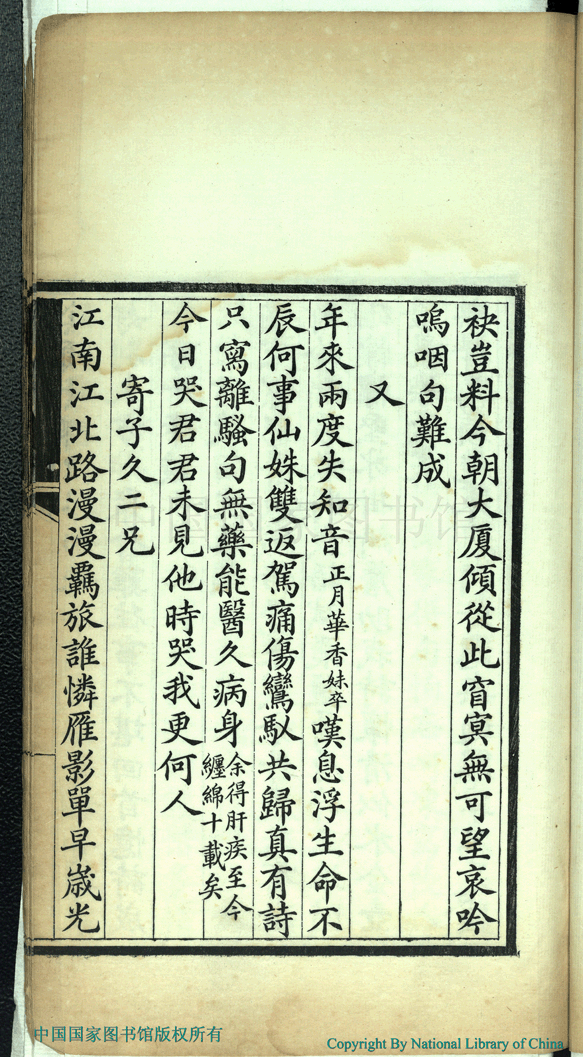 袂豈料今朝大厦傾從此窅冥無可望哀吟
嗚咽句難成
又
年來兩度失知音正月華香妹卒嘆息浮生命不
辰何事仙姝雙返駕痛傷鸞馭共歸真有詩
只寫離騷句無藥能醫久病身余得肝疾至今纏綿十載矣
今日哭君君未見他時哭我更何人
寄子久二兄
江南江北路漫漫羈旅誰憐雁影單早歲光
中国国家图书馆版权所有
Copyright By National Library of China